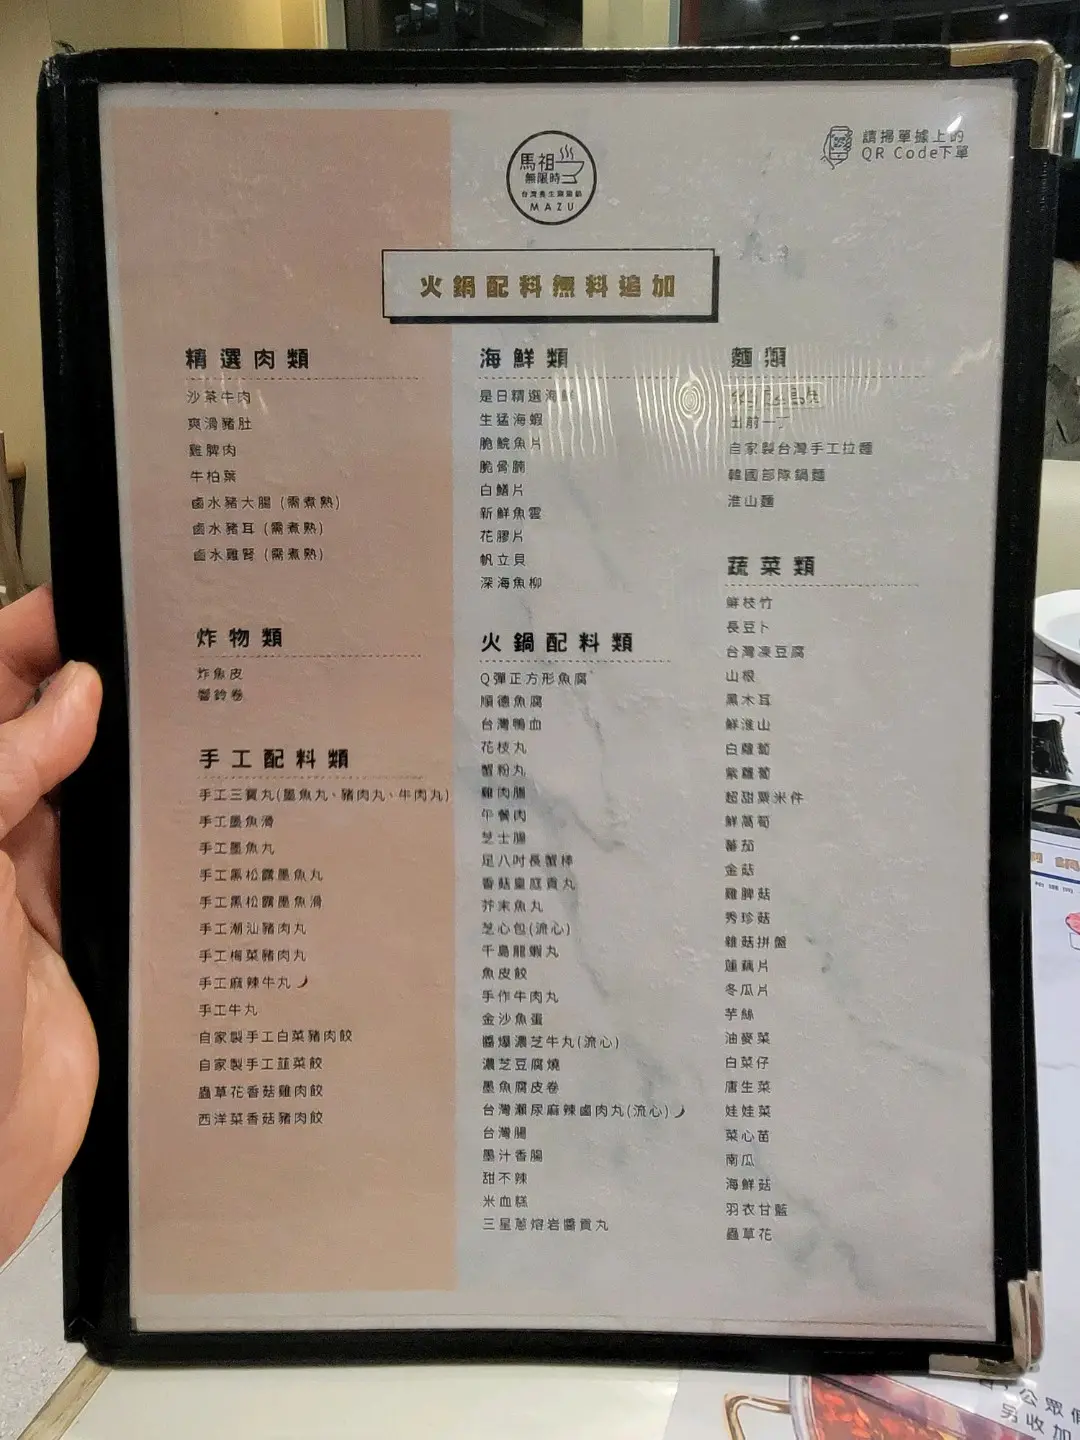 馬祖
無限時
MAZU
請掃單據上的
QR Code下單
火鍋配料無料追加
精選肉類
沙茶牛肉
爽滑豬肚
雞脾肉
牛柏葉
鹵水豬大腸 (需煮熟)
鹵水豬耳 (需煮熟)
鹵水雞腎 (需煮熟)
炸物類
炸魚皮
響鈴卷
手工配料類
手工三寶丸(墨魚丸、豬肉丸、牛肉丸)
手工墨魚滑
手工墨魚丸
手工黑松露墨魚丸
手工黑松露墨魚滑
手工潮汕豬肉丸
手工梅菜豬肉丸
手工麻辣牛丸
手工牛丸
自家製手工白菜豬肉餃
自家製手工韮菜餃
蟲草花香菇雞肉餃
西洋菜香菇豬肉餃
海鮮類
是日精選海鮮
生猛海蝦
脆鯇魚片
脆骨腩
白鱔片
新鮮魚雲
花膠片
帆立貝
深海魚柳
火鍋配料類
Q彈正方形魚腐
順德魚腐
台灣鴨血
花枝丸
蟹粉丸
雞肉腸
午餐肉
芝士腸
足八吋長蟹棒
香菇皇庭貢丸
芥末魚丸
芝心包(流心)
千島龍蝦丸
魚皮餃
手作牛肉丸
金沙魚蛋
醬爆濃芝牛丸(流心)
濃芝豆腐燒
墨魚腐皮卷
台灣瀨尿麻辣鹵肉丸(流心)
台灣腸
墨汁香腸
甜不辣
米血糕
三星蔥熔岩醬貢丸
麵類
出前一丁
自家製台灣手工拉麵
韓國部隊鍋麵
淮山麵
蔬菜類
鮮枝竹
長豆卜
台灣凍豆腐
山根
黑木耳
鮮淮山
白蘿蔔
紫蘿蔔
超甜粟米件
鮮萵荀
蕃茄
金菇
雞脾菇
秀珍菇
雜菇拼盤
蓮藕片
冬瓜片
芋絲
油麥菜
白菜仔
唐生菜
娃娃菜
菜心苗
南瓜
海鮮菇
羽衣甘藍
蟲草花
公眾假
另收加